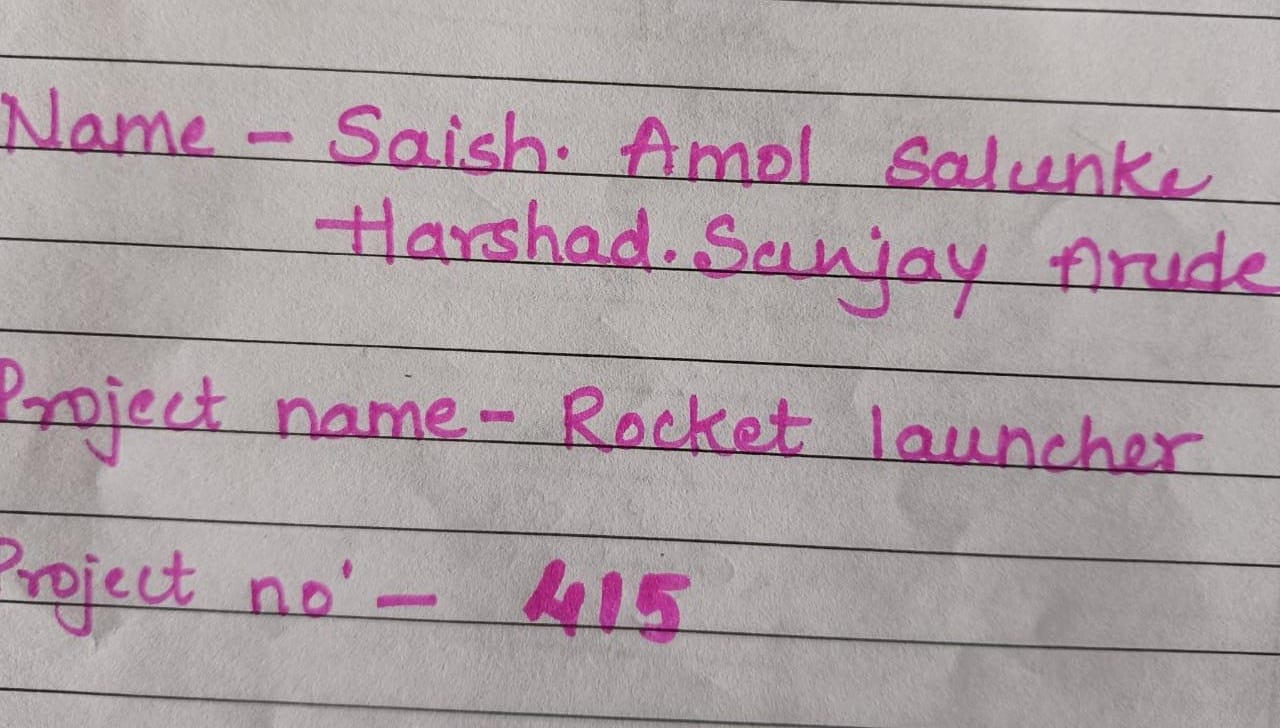 Name - Saish. Amol Salunke
Harshad. Sanjay Arude
Project name - Rocket launcher
Project no' - 415